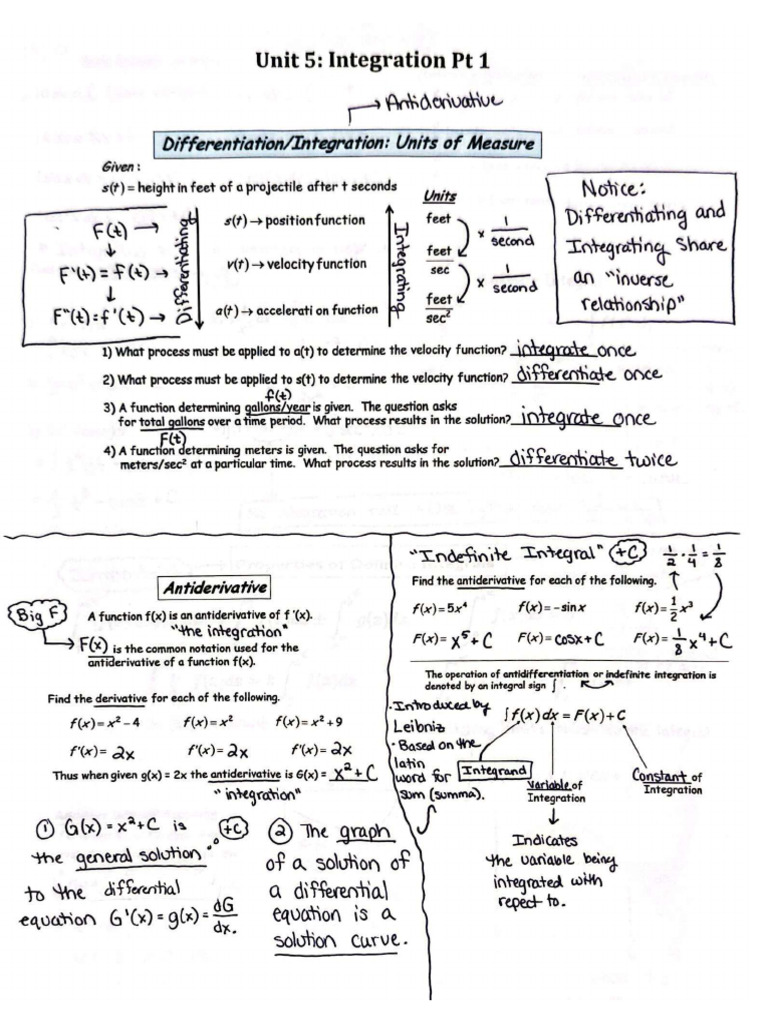 Unit 5: Integration Pt 1
→ Antiderivative
Differentiation/Integration: Units of Measure
Given:
s(t) = height in feet of a projectile after t seconds
F(t) →
↓
F'(t) = f(t) →
↓
F"(t) = f'(t) →
Differentiating
s(t) → position function
v(t) → velocity function
a(t) → acceleration function
Integrating
Units
feet
feet/sec
feet/sec²
× 1/second
× 1/second
Notice:
Differentiating and
Integrating Share
an "inverse
relationship"
1) What process must be applied to a(t) to determine the velocity function? integrate once
2) What process must be applied to s(t) to determine the velocity function? differentiate once
f(t)
3) A function determining gallons/year is given. The question asks
for total gallons over a time period. What process results in the solution? integrate once
F(t)
4) A function determining meters is given. The question asks for
meters/sec² at a particular time. What process results in the solution? differentiate twice
Antiderivative
Big F
A function f(x) is an antiderivative of f '(x).
"the integration"
F(x) is the common notation used for the
antiderivative of a function f(x).
Find the derivative for each of the following.
f(x) = x² - 4 f(x) = x² f(x) = x² + 9
f'(x) = 2x f'(x) = 2x f'(x) = 2x
Thus when given g(x) = 2x the antiderivative is G(x) = x² + C
"integration"
① G(x) = x² + C is +C
the general solution
to the differential
equation G'(x) = g(x) = dG/dx.
② The graph
of a solution of
a differential
equation is a
solution curve.
"Indefinite Integral" +C 1/2 · 1/4 = 1/8
Find the antiderivative for each of the following.
f(x) = 5x⁴ f(x) = -sin x f(x) = 1/2 x³
F(x) = x⁵ + C F(x) = cosx + C F(x) = 1/8 x⁴ + C
The operation of antidifferentiation or indefinite integration is
denoted by an integral sign ∫ .
• Introduced by
Leibniz
• Based on the
latin
word for
sum (summa).
∫
∫ f(x) dx = F(x) + C
Integrand
Variable of
Integration
Constant of
Integration
↓
Indicates
the variable being
integrated with
repect to.